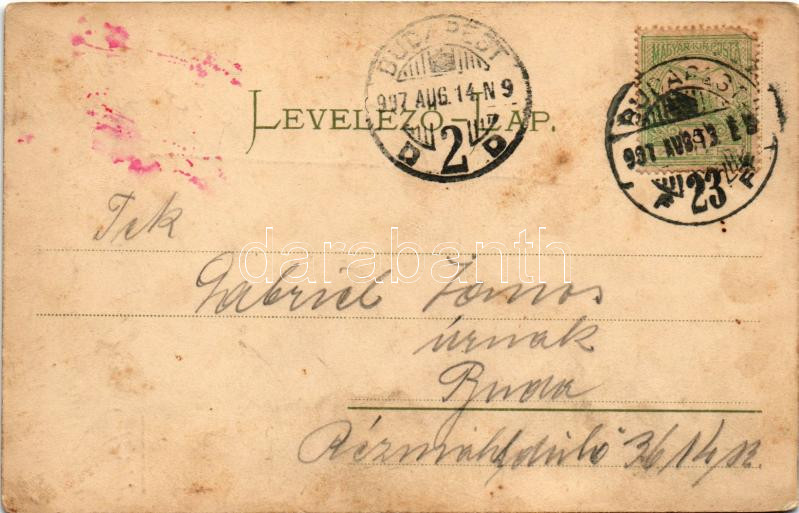 MAGYAR KIR. POSTA
BUDAPEST
907 AUG. 14 N 9
D 2 D
BUDAPEST
907 AUG 13
23
LEVELEZŐ-LAP.
Tek
darabanth
Gabriel Janos
úrnak
Buda
36/14 sz.